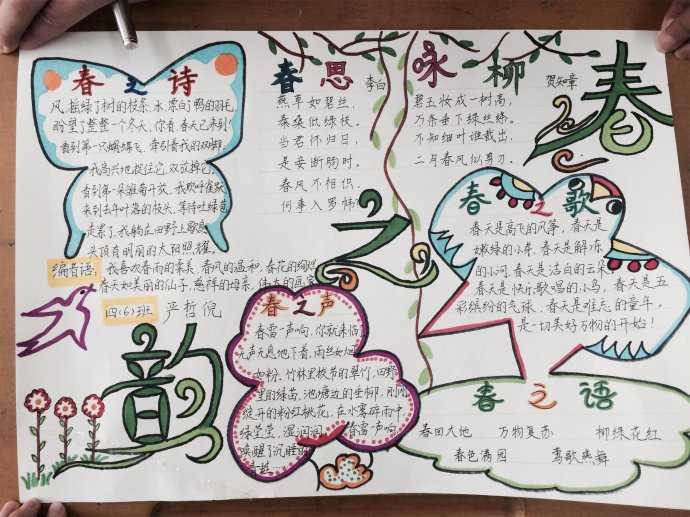 春之诗
风,摇绿了树的枝条,水,漂白了鸭的羽毛,
盼望了整整一个冬天,你看,春天已来到!
看到第一只蝴蝶飞,牵引着我的双脚;
我高兴地捉住它,双放掉它,
看到第一朵雏菊开放,我欢呼雀跃
来到去年叶落的枝头,等待吐绿苞
走累了,我躺在田野上歇息
头顶有明丽的太阳照耀。
编者语:我喜欢春雨的柔美,春风的温和,春花的绚烂
春天如美丽的仙子,慈祥的母亲,伟大的画家
四(6)班 严哲倪
春思 李白
燕草如碧丝,
秦桑低绿枝。
当君怀归日,
是妾断肠时。
春风不相识,
何事入罗帏?
咏柳 贺知章
碧玉妆成一树高,
万条垂下绿丝绦。
不知细叶谁裁出,
二月春风似剪刀。
春
之
韵
春之歌
春天是高飞的风筝,春天是
嫩绿的小芽,春天是解冻
的小河,春天是洁白的云朵,
春天是快乐歌唱的小鸟,春天是五
彩缤纷的气球,春天是难忘的童年。
是一切美好万物的开始!
春之声
春雷一声响,你就来临
无声无息地下着,雨丝如烟
如粉,竹林里拔节的翠竹,田野
里的绿苗,池塘边的垂柳,刚刚
绽开的粉红桃花,在水雾碎雨中
绿莹莹,湿润润
春雷一声响,
唤醒了沉睡
春之语
春回大地 万物复苏 柳绿花红
春色满园 莺歌燕舞